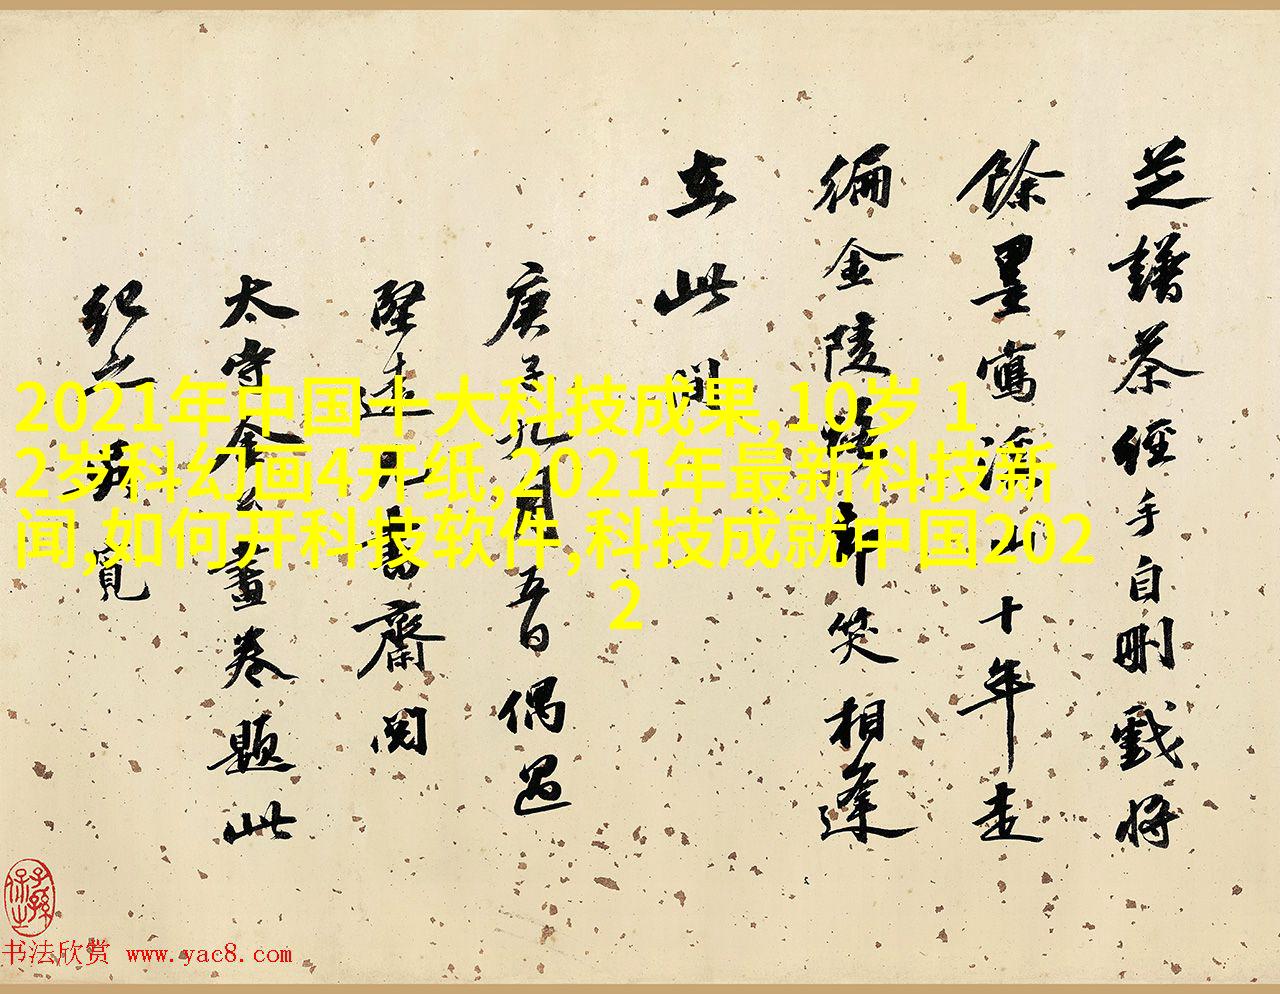 芝譜茶經手自刪戲將
餘墨寫山十年走
徧金陵卻笑相逢
在此間
庚子九月五日偶過
堅遠書齋閱
太守畫卷題此
紀之覽
2021年中国十大科技成果,10岁 1
2岁科幻画4开纸,2021年最新科技新
闻,如何开科技软件,科技成就中国202
2
子孫保之
书法欣赏 www.yac8.com